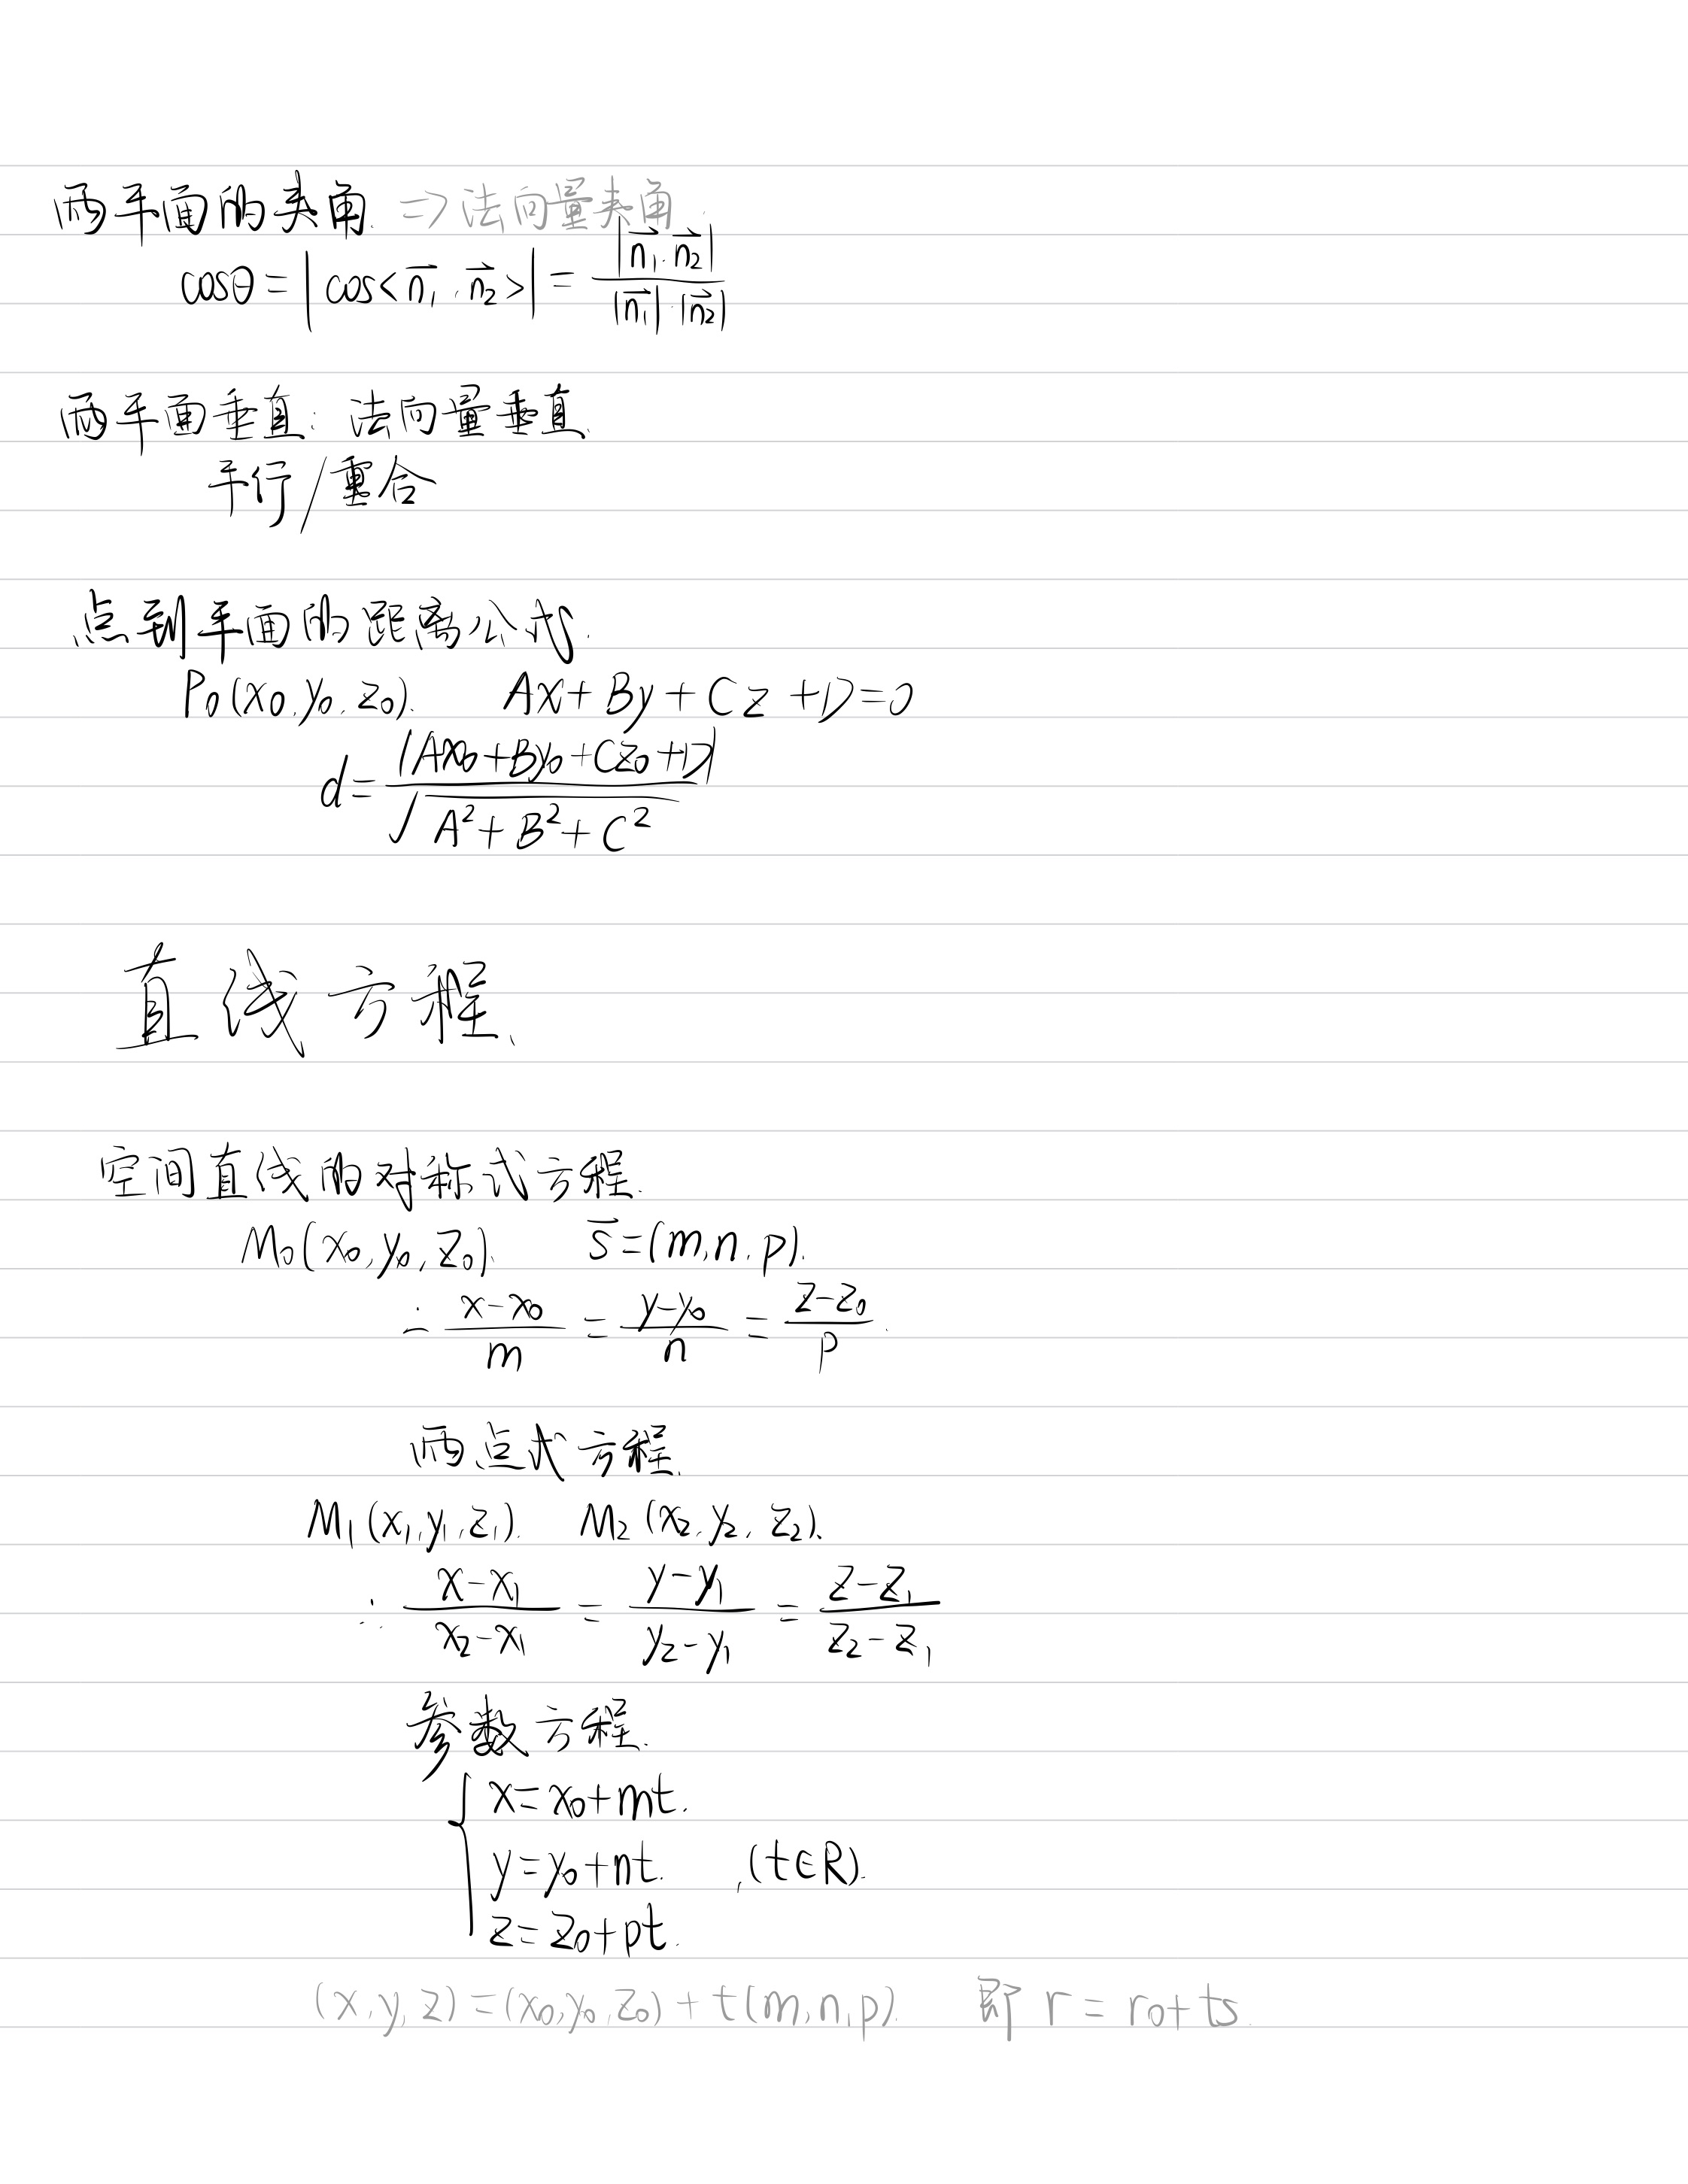 两平面的夹角. ⇒ 法向量夹角.
cosθ = |cos<n₁⃗, n₂⃗>| = |n₁⃗·n₂⃗| / |n₁⃗|·|n₂⃗|
两平面垂直: 法向量垂直.
平行/重合
点到平面的距离公式.
P₀(x₀, y₀, z₀). Ax + By + Cz + D = 0
d = |Ax₀ + By₀ + Cz₀ + D| / √(A² + B² + C²)
直线方程.
空间直线的对称式方程.
M₀(x₀, y₀, z₀). s⃗ = (m, n, p).
∴ (x - x₀)/m = (y - y₀)/n = (z - z₀)/p.
两点式方程.
M₁(x₁, y₁, z₁). M₂(x₂, y₂, z₂).
∴ (x - x₁)/(x₂ - x₁) = (y - y₁)/(y₂ - y₁) = (z - z₁)/(z₂ - z₁)
参数方程.
{ x = x₀ + mt.
y = y₀ + nt. , (t∈R).
z = z₀ + pt.
(x, y, z) = (x₀, y₀, z₀) + t(m, n, p). 即 r = r₀ + ts.